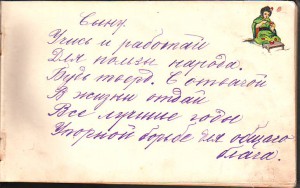 Сыну.
Учись и работай
Для пользы народа.
Будь тверд. С отвагой
В жизни отдай
Все лучшие годы
Упорной борьбе для общего
блага.